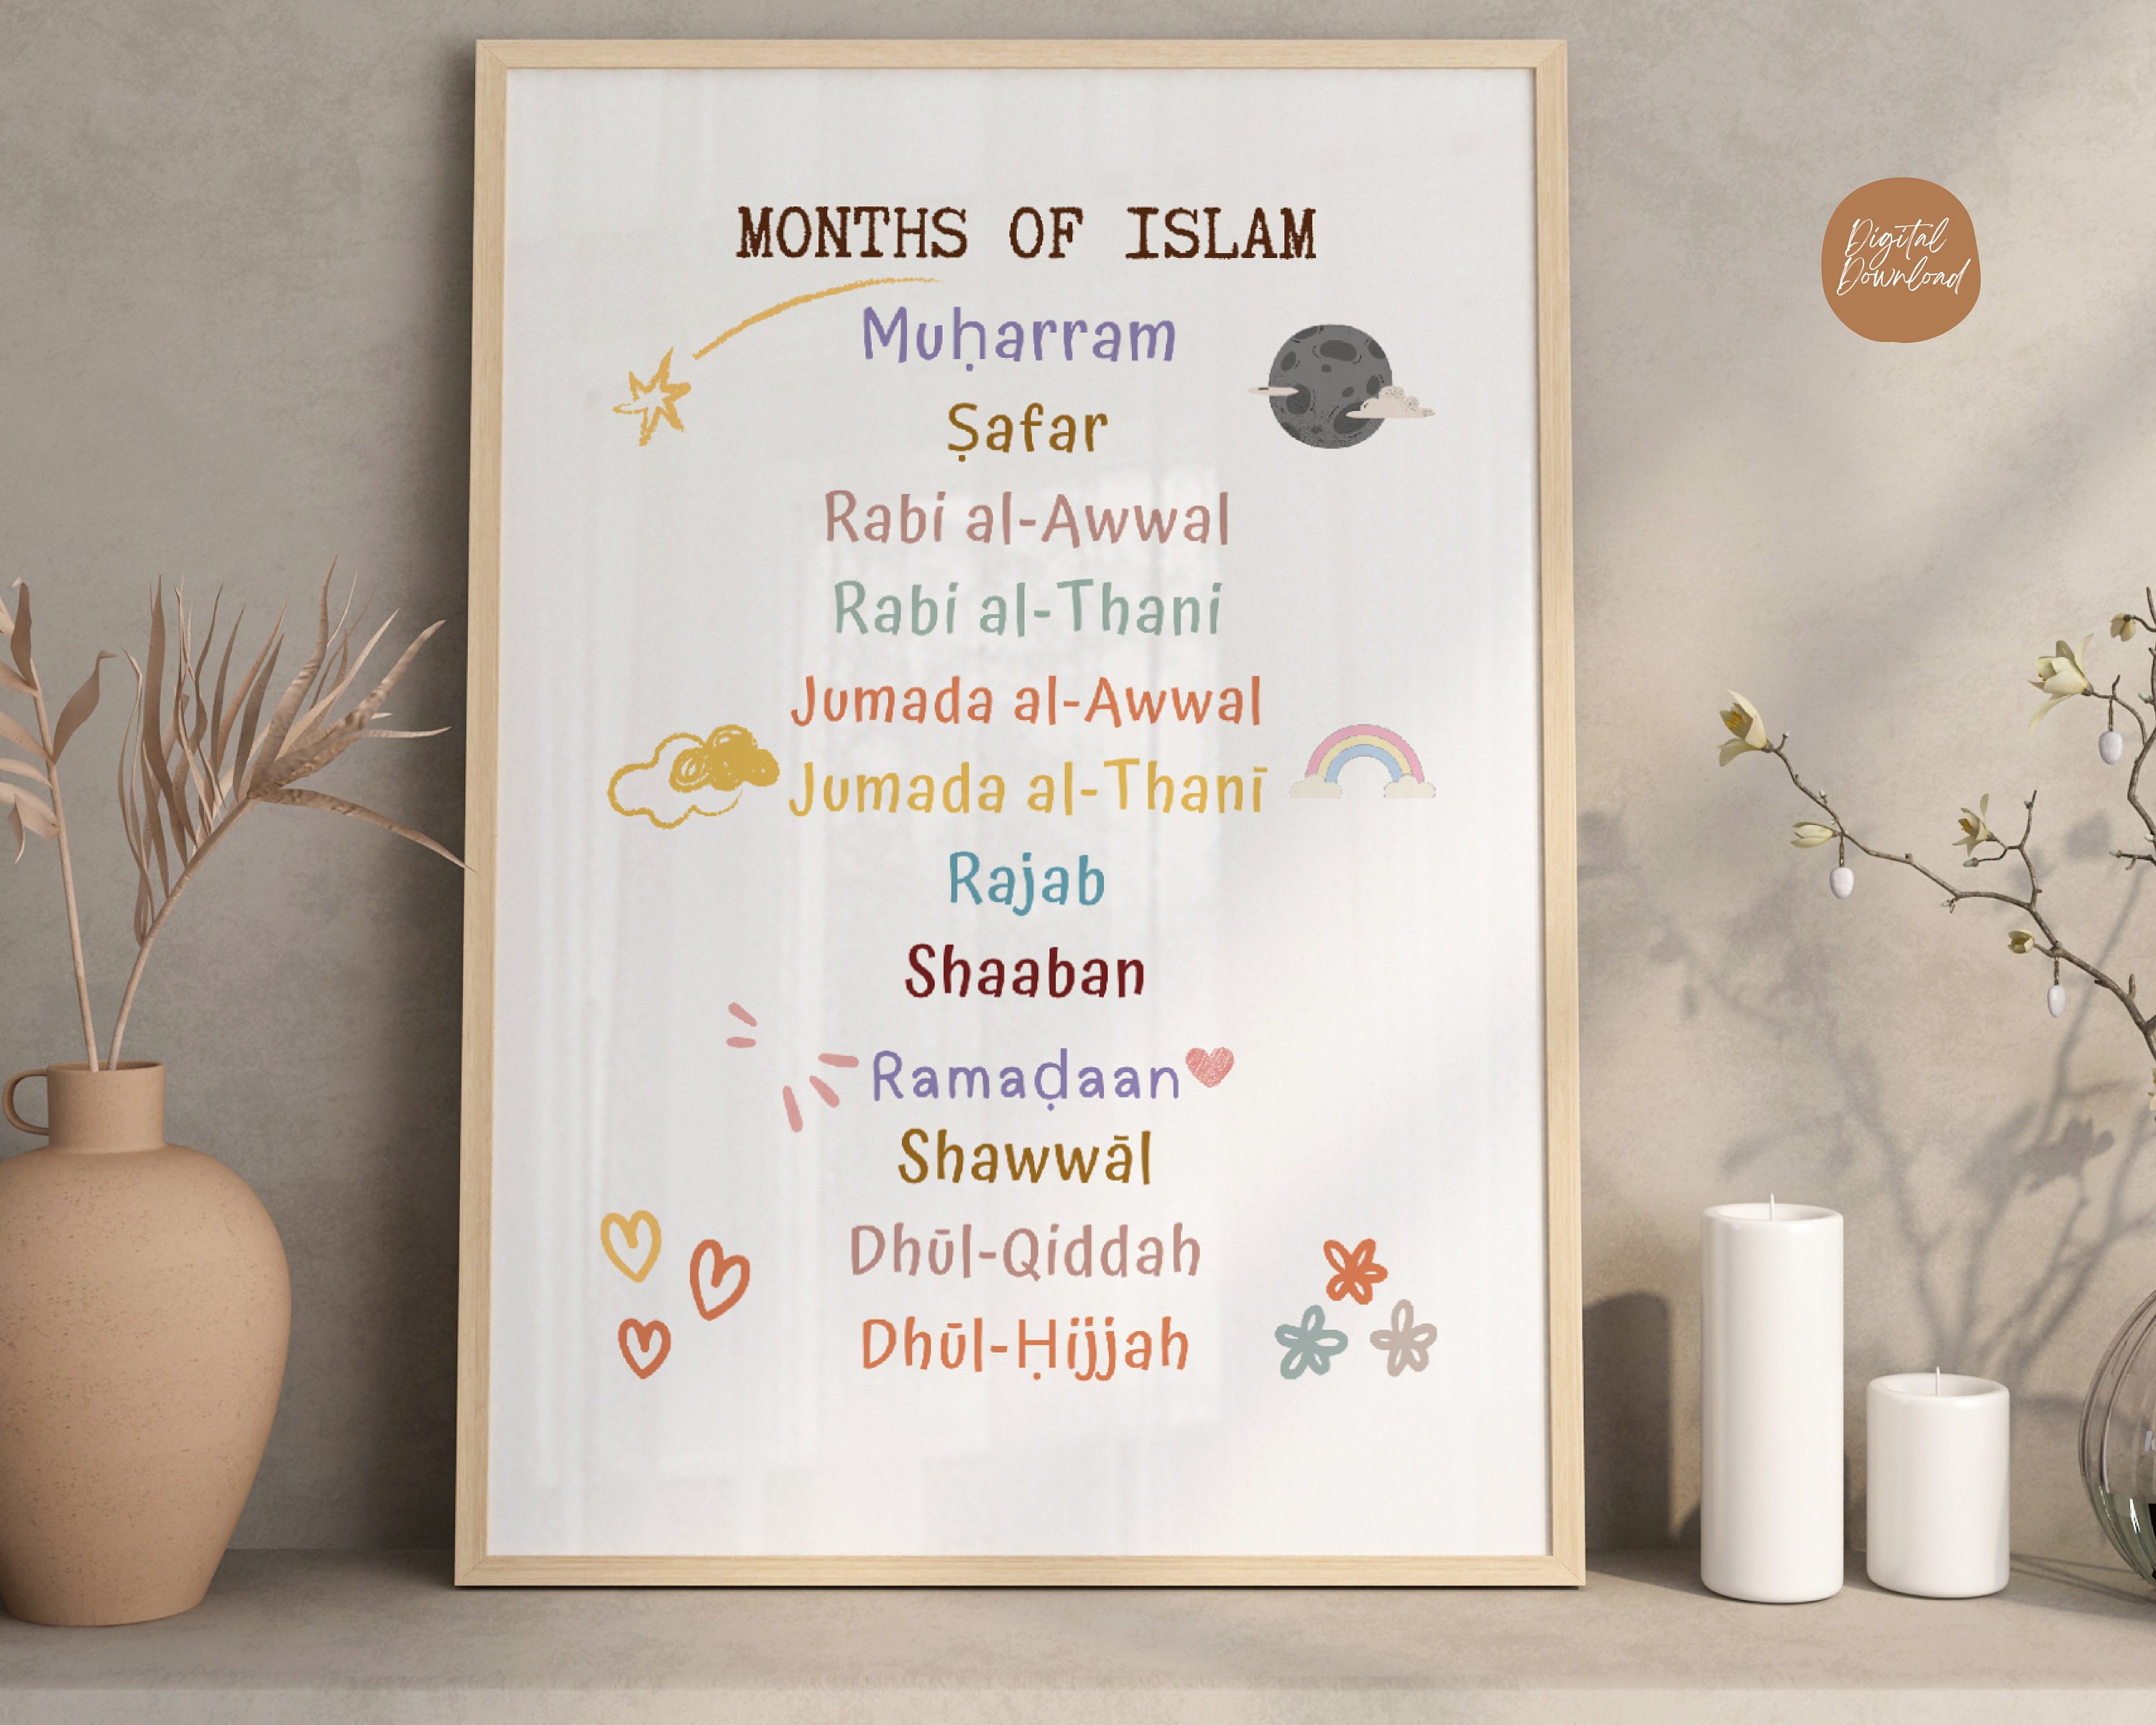 MONTHS OF ISLAM
Muḥarram
Ṣafar
Rabi al-Awwal
Rabi al-Thani
Jumada al-Awwal
Jumada al-Thanī
Rajab
Shaaban
Ramaḍaan
Shawwāl
Dhūl-Qiddah
Dhūl-Ḥijjah
Digital
Download